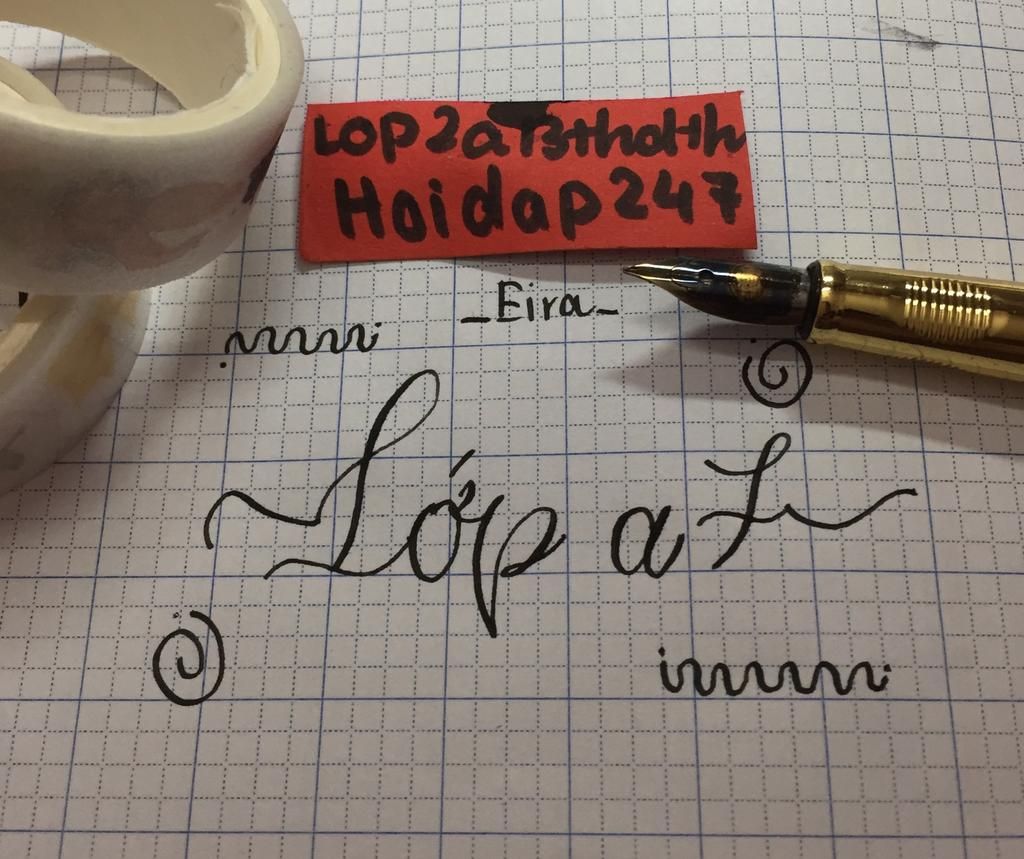 LOP2a13thdth
Hoidap247
_Eira_
Lớp a7